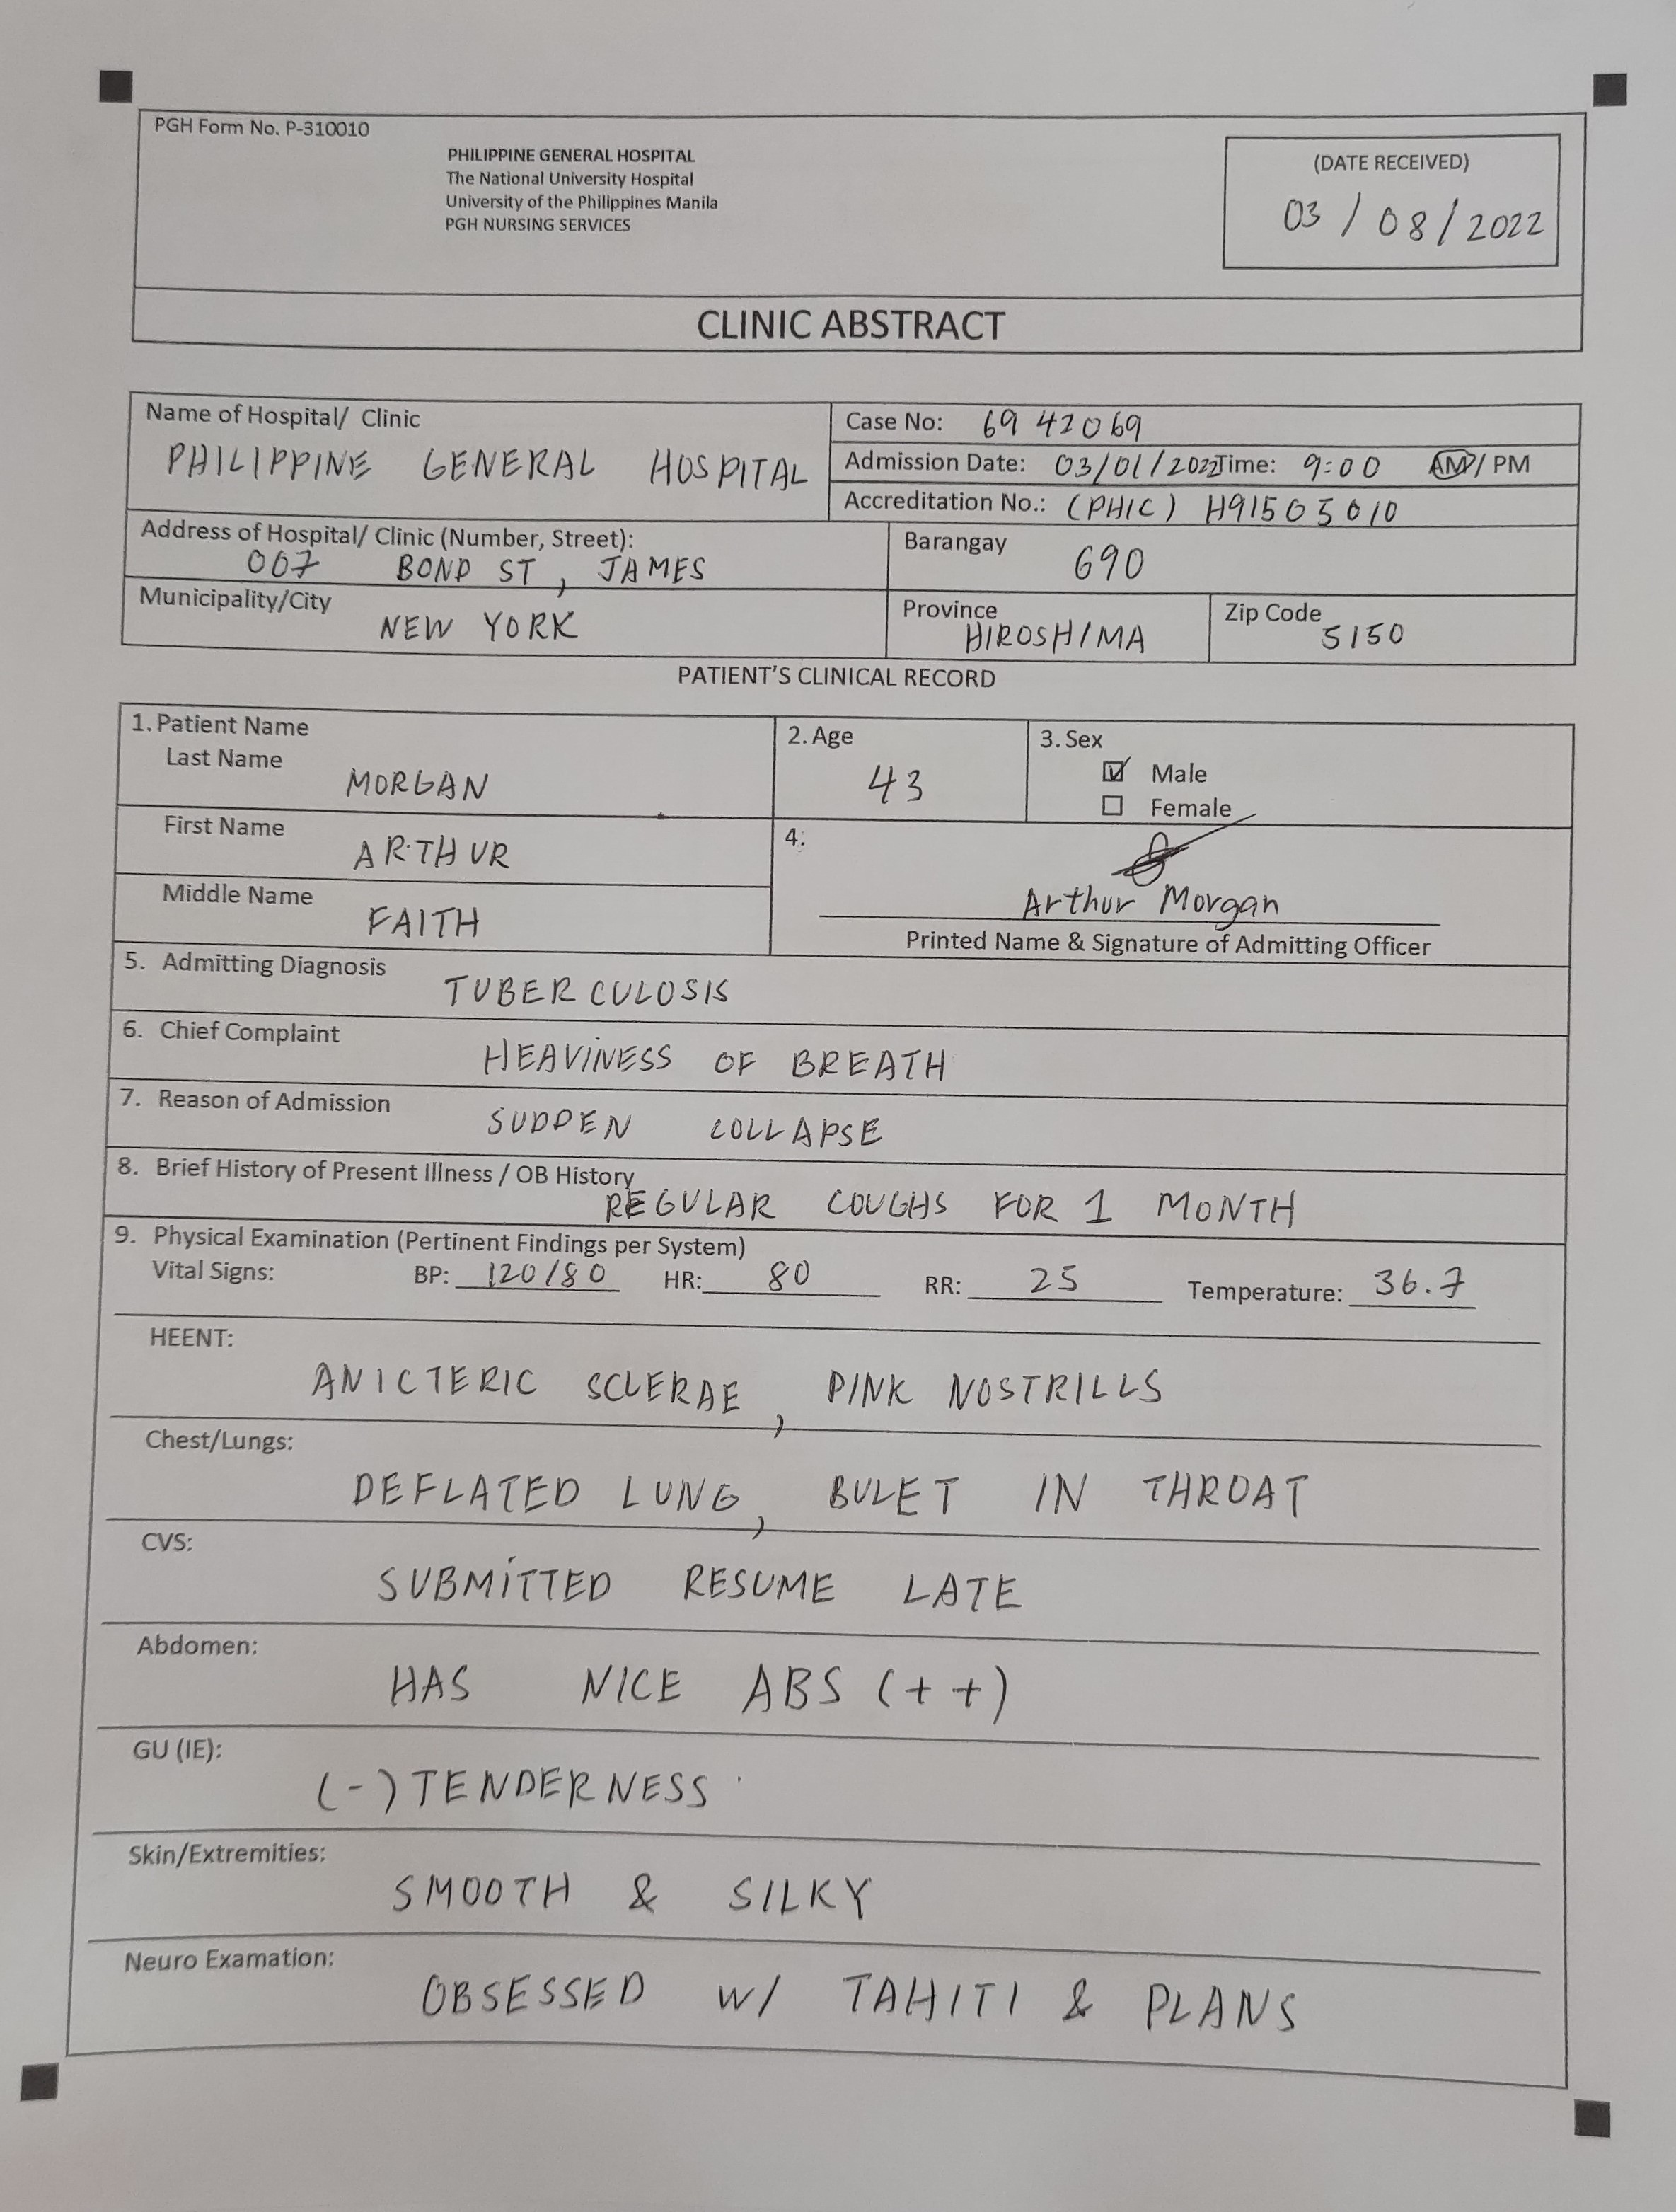 PGH Form No. P-310010
PHILIPPINE GENERAL HOSPITAL
The National University Hospital
University of the Philippines Manila
PGH NURSING SERVICES
(DATE RECEIVED)
03/08/2022
CLINIC ABSTRACT
Name of Hospital/ Clinic
PHILIPPINE GENERAL HOSPITAL
Case No: 6942069
Admission Date: 03/01/2022 Time: 9:00 AM/ PM
Accreditation No.: (PHIC) H91505010
Address of Hospital/ Clinic (Number, Street):
007 BOND ST, JAMES
Barangay
690
Municipality/City
NEW YORK
Province
HIROSHIMA
Zip Code
5150
PATIENT'S CLINICAL RECORD
1. Patient Name
Last Name
MORGAN
2. Age
43
3. Sex
Male
Female
First Name
ARTHUR
Middle Name
FAITH
4.
Arthur Morgan
Printed Name & Signature of Admitting Officer
5. Admitting Diagnosis
TUBERCULOSIS
6. Chief Complaint
HEAVINESS OF BREATH
7. Reason of Admission
SUDDEN COLLAPSE
8. Brief History of Present Illness / OB History
REGULAR COUGHS FOR 1 MONTH
9. Physical Examination (Pertinent Findings per System)
Vital Signs: BP: 120/80 HR: 80 RR: 25 Temperature: 36.7
HEENT:
ANICTERIC SCLERAE, PINK NOSTRILLS
Chest/Lungs:
DEFLATED LUNG, BULET IN THROAT
CVS:
SUBMITTED RESUME LATE
Abdomen:
HAS NICE ABS (++)
GU (IE):
(-) TENDERNESS
Skin/Extremities:
SMOOTH & SILKY
Neuro Examation:
OBSESSED W/ TAHITI & PLANS